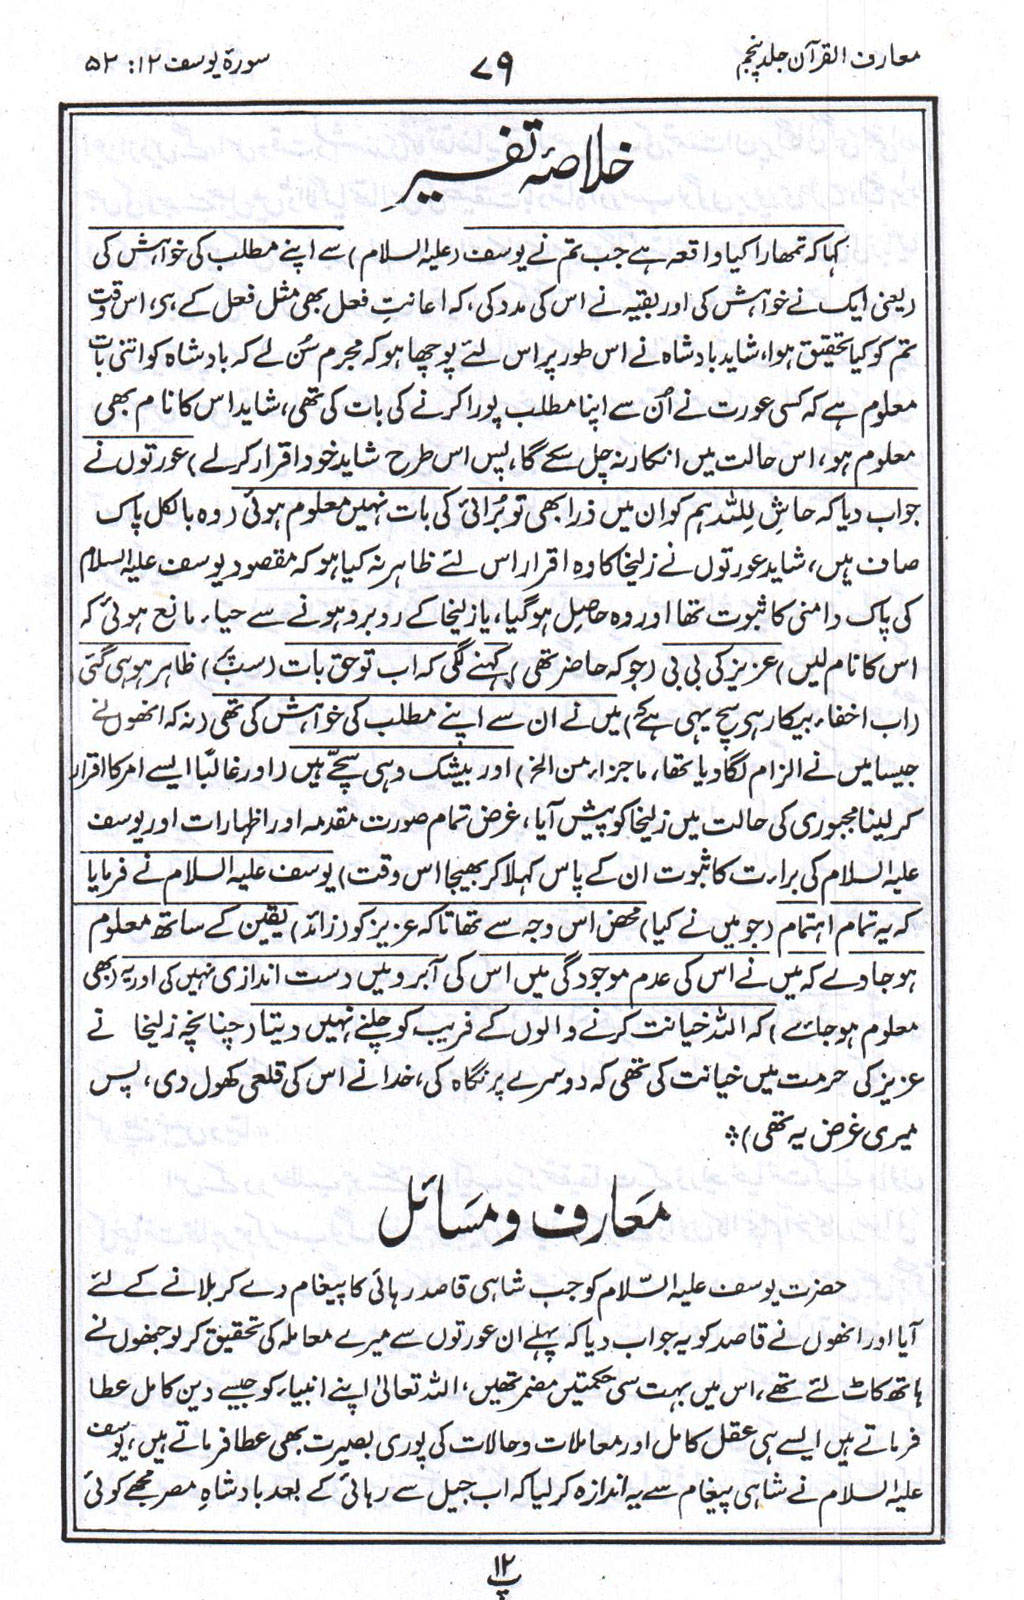 معارف القرآن جلد پنجم
۷۹
سورۃ یوسف ۱۲: ۵۲
خلاصۂ تفسیر
کہا کہ تمھارا کیا واقعہ ہے جب تم نے یوسف (علیہ السلام) سے اپنے مطلب کی خواہش کی
(یعنی ایک نے خواہش کی اور بقیہ نے اس کی مدد کی، کہ اعانتِ فعل بھی مثل فعل کے ہی، اس وقت
تم کو کیا تحقیق ہوا، شاید بادشاہ نے اس طور پر اس لئے پوچھا ہو کہ مجرم سُن لے کہ بادشاہ کو اتنی بات
معلوم ہے کہ کسی عورت نے اُن سے اپنا مطلب پورا کرنے کی بات کی تھی، شاید اس کا نام بھی
معلوم ہو، اس حالت میں انکار نہ چل سکے گا، پس اس طرح شاید خود اقرار کرلے) عورتوں نے
جواب دیا کہ حاش لِلہ ہم کو ان میں ذرا بھی تو بُرائی کی بات نہیں معلوم ہوئی (وہ بالکل پاک
صاف ہیں، شاید عورتوں نے زلیخا کا وہ اقرار اس لئے ظاہر نہ کیا ہو کہ مقصود یوسف علیہ السلام
کی پاک دامنی کا ثبوت تھا اور وہ حاصل ہوگیا، یا زلیخا کے روبرو ہونے سے حیاء مانع ہوئی کہ
اس کا نام لیں) عزیز کی بی بی (جو کہ حاضر تھی) کہنے لگی کہ اب تو حق بات (سب پر) ظاہر ہو ہی گئی
(اب اخفاء بیکار ہی سچ یہی ہے کہ) میں نے ان سے اپنے مطلب کی خواہش کی تھی (نہ کہ انھوں نے
جیسا میں نے الزام لگا دیا تھا، ما جزاء من الخ) اور بیشک وہی سچّے ہیں (اور غالبًا ایسے امر کا اقرار
کرلینا مجبوری کی حالت میں زلیخا کو پیش آیا، غرض تمام صورت مقدمہ اور اظہارات اور یوسف
علیہ السلام کی براءت کا ثبوت ان کے پاس کہلا کر بھیجا اس وقت) یوسف علیہ السلام نے فرمایا
کہ یہ تمام اہتمام (جو میں نے کیا) محض اس وجہ سے تھا تاکہ عزیز کو (زائد) یقین کے ساتھ معلوم
ہوجاوے کہ میں نے اس کی عدم موجودگی میں اس کی آبرو میں دست اندازی نہیں کی اور یہ (بھی
معلوم ہوجائے) کہ اللہ خیانت کرنے والوں کے فریب کو چلنے نہیں دیتا (چنانچہ زلیخا نے
عزیز کی حرمت میں خیانت کی تھی کہ دوسرے پر نگاہ کی، خدا نے اس کی قلعی کھول دی، پس
میری غرض یہ تھی)
معارف و مسائل
حضرت یوسف علیہ السّلام کو جب شاہی قاصد رہائی کا پیغام دے کر بلانے کے لئے
آیا اور انھوں نے قاصد کو یہ جواب دیا کہ پہلے ان عورتوں سے میرے معاملہ کی تحقیق کرلو جنھوں نے
ہاتھ کاٹ لئے تھے، اس میں بہت سی حکمتیں مضمر تھیں، اللہ تعالیٰ اپنے انبیاء کو جیسے دین کامل عطا
فرماتے ہیں ایسے ہی عقل کامل اور معاملات و حالات کی پوری بصیرت بھی عطا فرماتے ہیں، یوسف
علیہ السلام نے شاہی پیغام سے یہ اندازہ کرلیا کہ اب جیل سے رہائی کے بعد بادشاہِ مصر مجھے کوئی
۱۲
پ